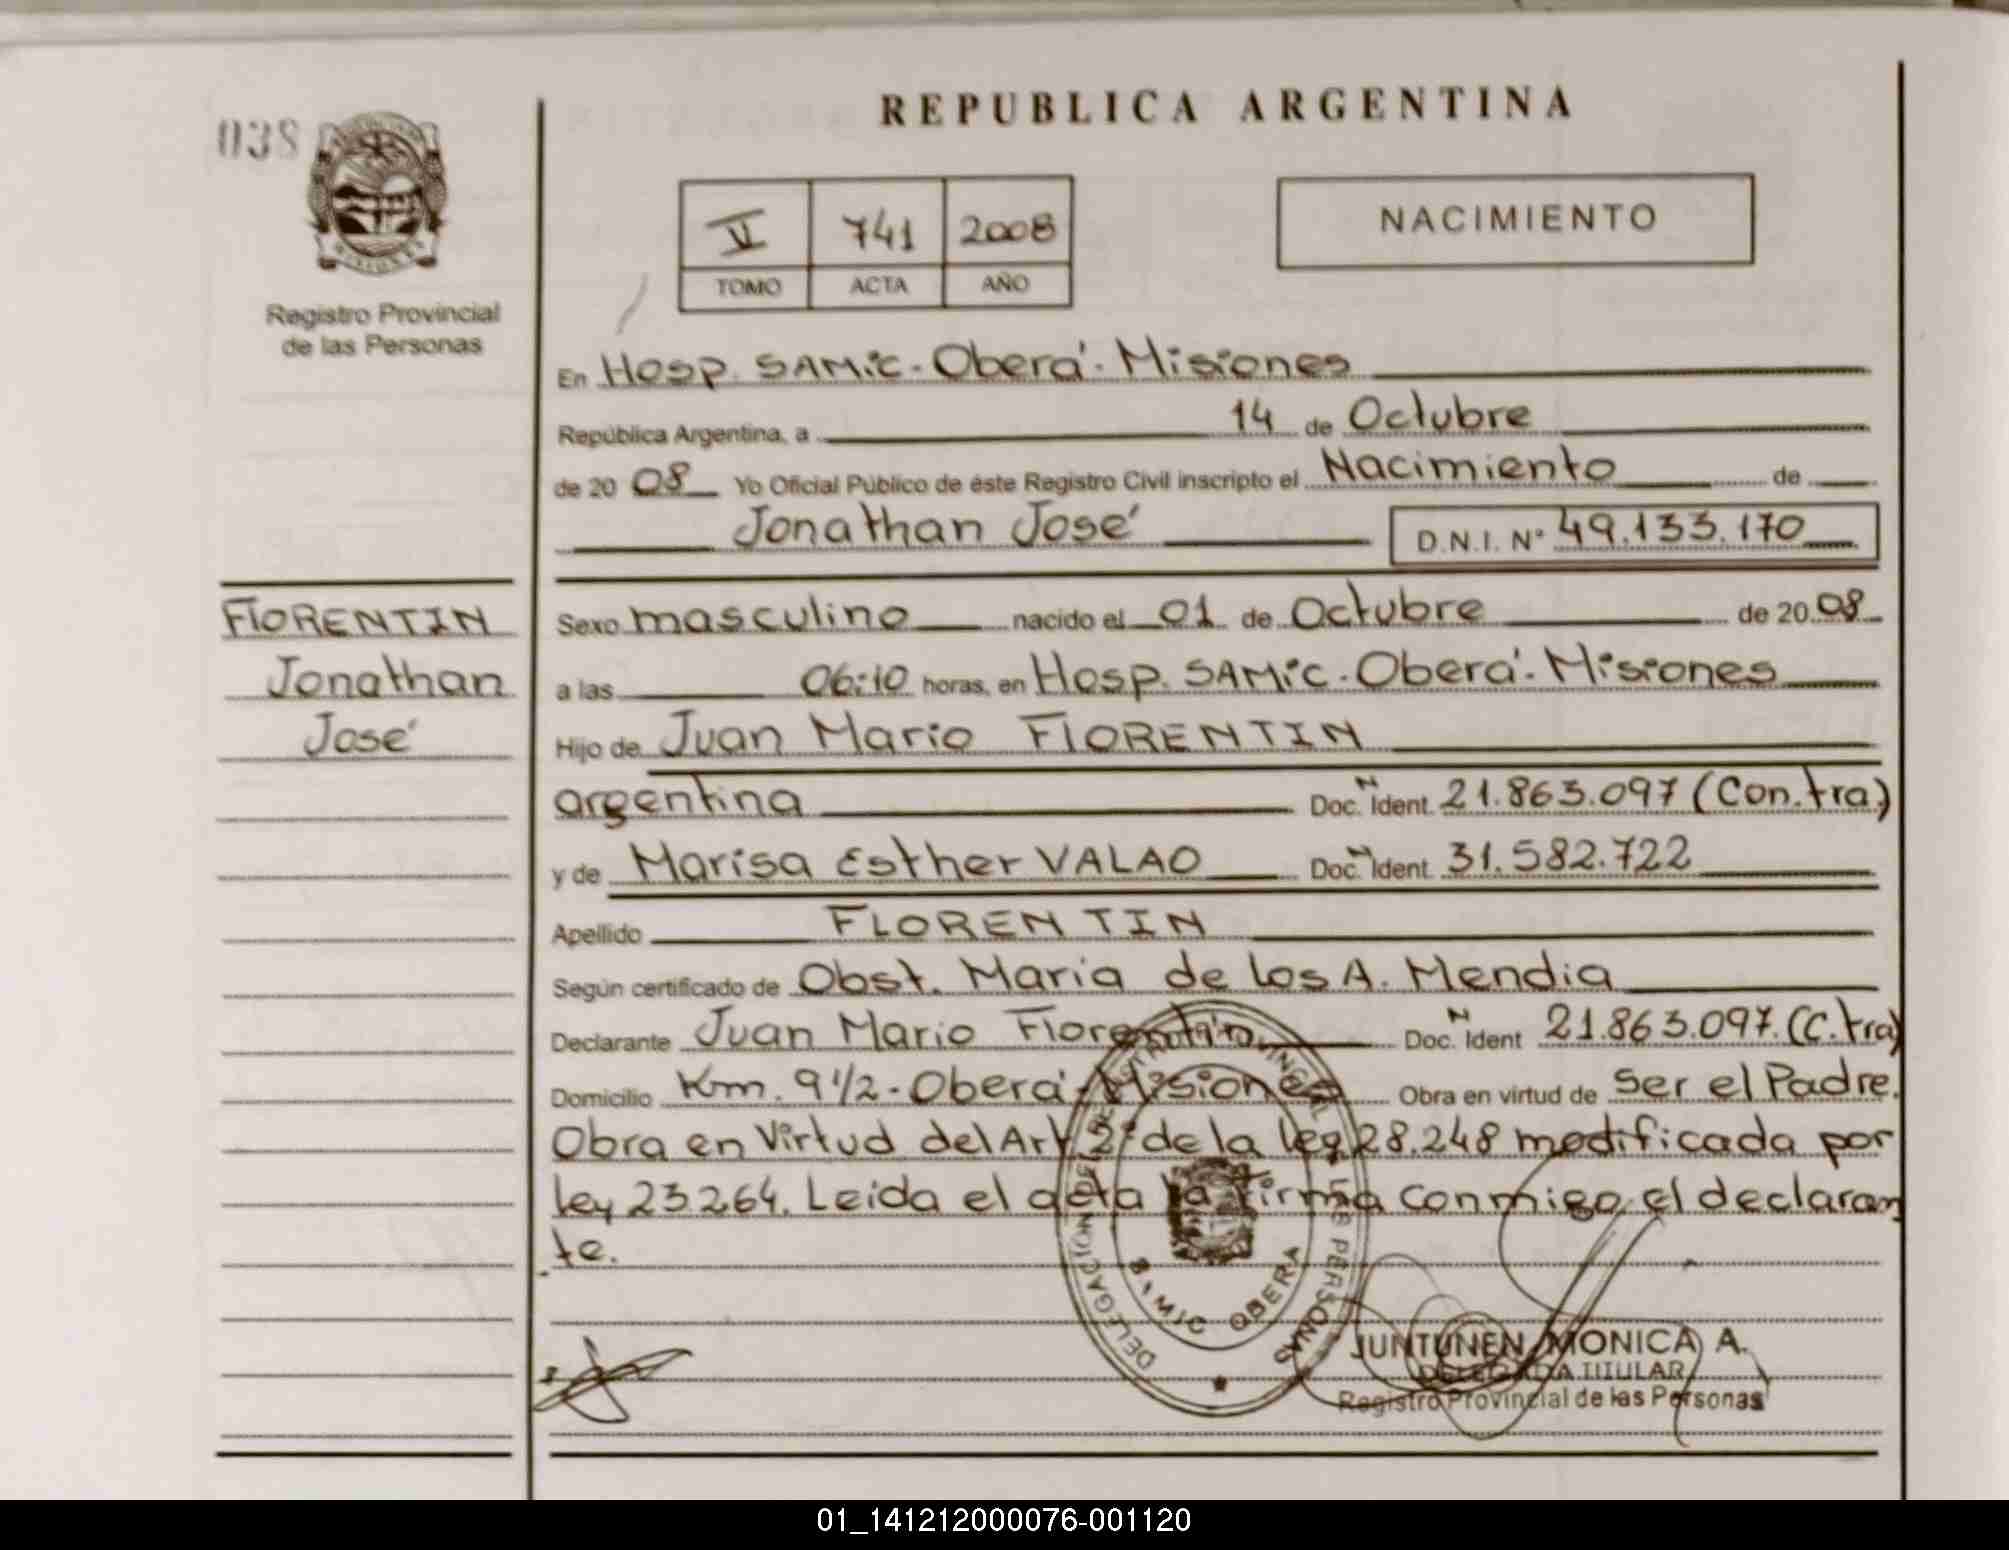 REPUBLICA ARGENTINA
038
V 741 2008
TOMO ACTA AÑO
NACIMIENTO
MISIONES
Registro Provincial
de las Personas
En Hosp. SAMIC - Oberá - Misiones
República Argentina, a 14 de Octubre
de 20 08 Yo Oficial Público de éste Registro Civil inscripto el Nacimiento de
Jonathan José D.N.I. N° 49.133.170
FlORENTIN
Jonathan
José
Sexo masculino nacido el 01 de Octubre de 20 08
a las 06:10 horas, en Hosp. SAMIC - Oberá - Misiones
Hijo de Juan Mario FlORENTIN
argentina Doc. N Ident. 21.863.097 (Con.tra)
y de Marisa Esther VALAO Doc. N Ident. 31.582.722
Apellido FLORENTIN
Según certificado de Obst. Maria de los A. Mendia
Declarante Juan Mario Florentin Doc. N Ident 21.863.097. (C.tra)
Domicilio Km. 9 1/2 - Oberá - Misiones Obra en virtud de ser el Padre.
Obra en Virtud del Art 2° de la ley 28.248 modificada por
ley 23.264. Leida el acta la firma conmigo el declaran
te.
DELEGACION DEL REGISTRO PROVINCIAL DE LAS PERSONAS
SAMIC OBERA
JUNTUNEN, MONICA A.
DELEGADA TITULAR
Registro Provincial de las Personas
01_141212000076-001120